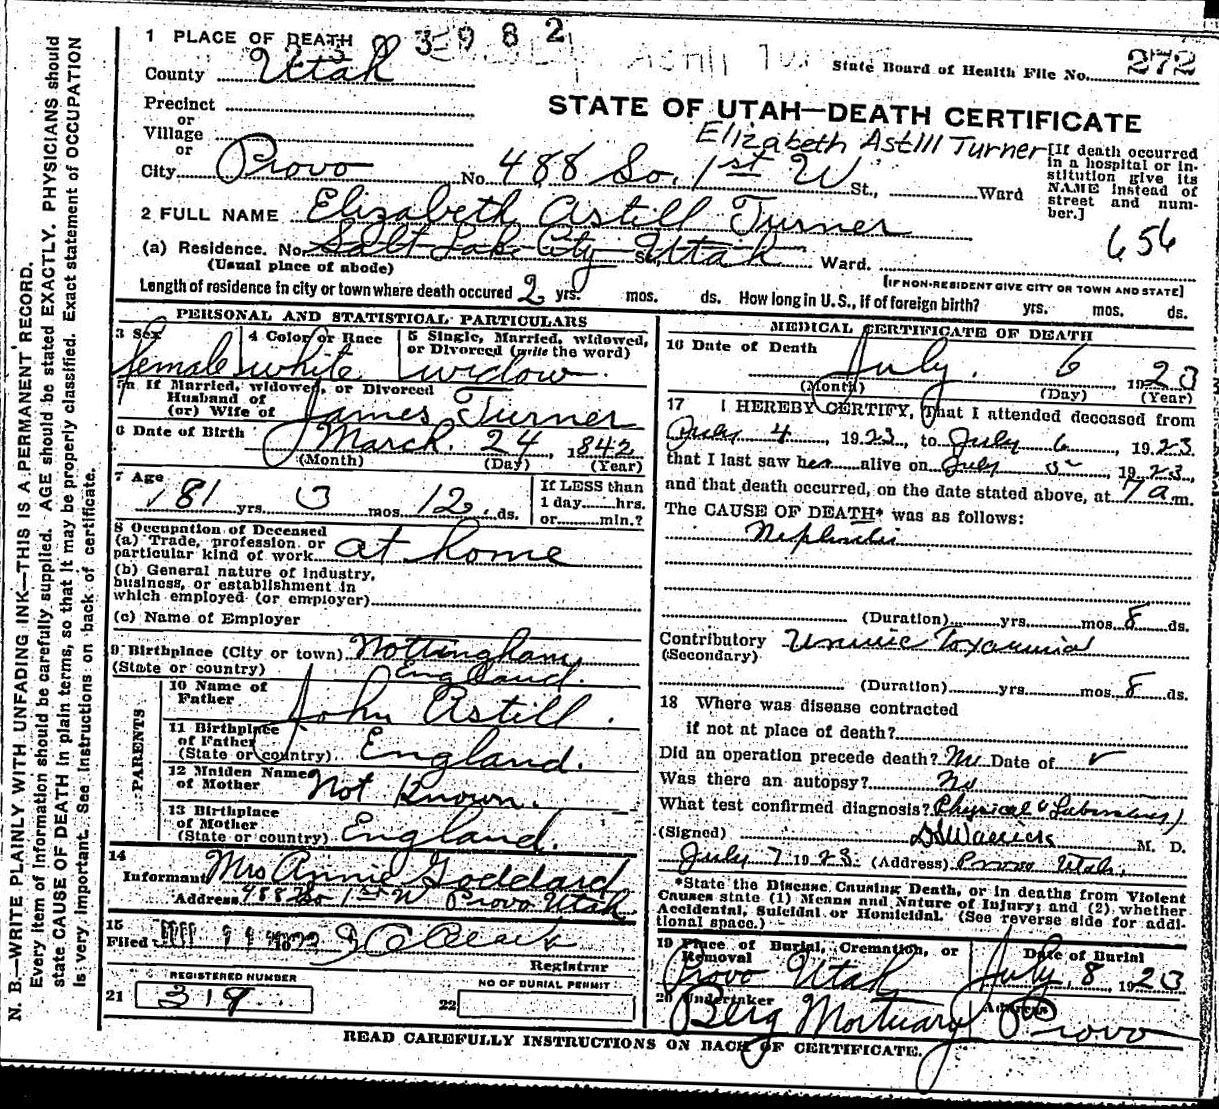 N. B.—WRITE PLAINLY WITH UNFADING INK—THIS IS A PERMANENT RECORD.
Every item of information should be carefully supplied. AGE should be stated EXACTLY. PHYSICIANS should
state CAUSE OF DEATH in plain terms, so that it may be properly classified. Exact statement of OCCUPATION
is very important. See instructions on back of certificate.
1 PLACE OF DEATH
County Utah
State Board of Health File No. 272
Precinct
or
Village
or
City Provo
STATE OF UTAH—DEATH CERTIFICATE
Elizabeth Astill Turner
No. 488 So. 1st W St., Ward
[If death occurred
in a hospital or in-
stitution give its
NAME instead of
street and num-
ber.]
2 FULL NAME Elizabeth Astill Turner
656
(a) Residence. No. Salt Lake City St., Utah Ward.
(Usual place of abode)
[IF NON-RESIDENT GIVE CITY OR TOWN AND STATE]
Length of residence in city or town where death occured 2 yrs. mos. ds. How long in U.S., if of foreign birth? yrs. mos. ds.
PERSONAL AND STATISTICAL PARTICULARS
3 Sex
female
4 Color or Race
white
5 Single, Married, widowed,
or Divorced (write the word)
widow
5a If Married, widowed, or Divorced
Husband of
(or) Wife of James Turner
6 Date of Birth March 24, 1842
(Month) (Day) (Year)
7 Age
81 yrs. 3 mos. 12 ds.
If LESS than
1 day hrs.
or min.?
8 Occupation of Deceased
(a) Trade, profession or
particular kind of work at home
(b) General nature of industry,
business, or establishment in
which employed (or employer)
(c) Name of Employer
9 Birthplace (City or town) Nottingham
(State or country) England.
PARENTS
10 Name of
Father John Astill.
11 Birthplace
of Father
(State or country) England.
12 Maiden Name
of Mother Not Known.
13 Birthplace
of Mother
(State or country) England.
14
Informant Mrs Annie Goddard
Address 488 So 1st W Provo Utah
15
Filed
Registrar
REGISTERED NUMBER
21 319
NO OF BURIAL PERMIT
22
MEDICAL CERTIFICATE OF DEATH
16 Date of Death July 6, 1923
(Month) (Day) (Year)
17 I HEREBY CERTIFY, That I attended deceased from
July 4, 1923, to July 6, 1923
that I last saw her alive on July 5, 1923,
and that death occurred, on the date stated above, at 7 a m.
The CAUSE OF DEATH* was as follows:
(Duration) yrs. mos. 8 ds.
Contributory
(Secondary)
(Duration) yrs. mos. 8 ds.
18 Where was disease contracted
if not at place of death?
Did an operation precede death? No Date of
Was there an autopsy? No
What test confirmed diagnosis? Physical &
(Signed) M. D.
July 7 1923 (Address) Provo Utah.
*State the Disease Causing Death, or in deaths from Violent
Causes state (1) Means and Nature of Injury; and (2) whether
Accidental, Suicidal or Homicidal. (See reverse side for addi-
tional space.)
19 Place of Burial, Cremation, or
Removal
Provo Utah
Date of Burial
July 8, 1923
20 Undertaker
Berg Mortuary
Address
Provo
READ CAREFULLY INSTRUCTIONS ON BACK OF CERTIFICATE.